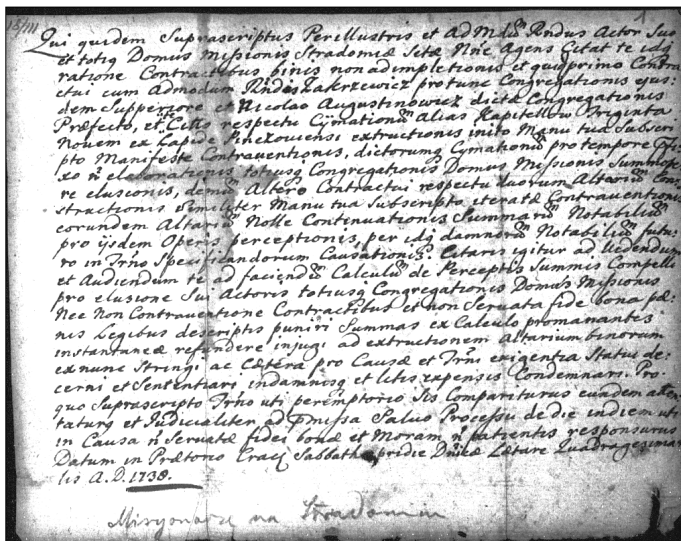 15/III
1
Qui quidem Suprascriptus Perillustris et Adm Rndus Actor Suo
et totiq Domus Missionis Stradomiæ Sitæ Nne Agens Citat te idq
ratione Contractibus binis non adimpletionis et quid primo Contra
ctui cum Admodum Rndis Zakrzewicz pro tunc Congregationis ejus:
dem Supperiore et Nicolao Augustinowicz dictæ Congregationis
Præfecto, et respectu Cymationū alias Kapitellow Triginta
Novem ex Lapide Pinczoviensi extructionis inito Manu tua Subscri
pto Manifestæ Contraventionis, dictorumq Cymationū pro tempore
xo ñ elaborationis totiusq Congregationis Domus Missionis Summope
re elusionis, Altero Contractui respectu duorum Altariū Con:
structionis Similiter Manu tua Subscripto iteratæ Contraventionis
eorundem Altariū Nolle Continuationis Summarū Notabiliū
pro ijsdem Operis perceptionis, per idq damnorū Notabiliū futu:
ro in Trño Specificandorum Causationis. Citaris igitur ad Videndum
et Audiendum te ad faciendū Calculū de Perceptis Summis Compelli
pro elusione Sui Actoris totiusq Congregationis Domus Missionis
Nec Non Contraventione Contractibus et non Servata fide bona pæ:
nis Legibus descriptis puniri Summas ex Calculo promanantes
instantanee refundere injugi ad extructionem Altarium binorum
exnunc Stringi ac Cætera pro Causæ et Trñi exigentia Statui de:
cerni et Sententiari indamnosq et litis expensis Condemnari. Pro
quo Suprascripto Trño uti peremptorio Sis Compariturus eundem atten
taturq et Judicialiter ad præmissa Salvo Processu de die indiem uti
in Causa ñ Servatæ fidei bonæ et Moram ñ patientis responsurus
Datum in Prætorio Cracj Sabbatho pridie Dnicæ Lætare Quadragesima
lis A.D. 1738.
Misyonarze na Stradomiu